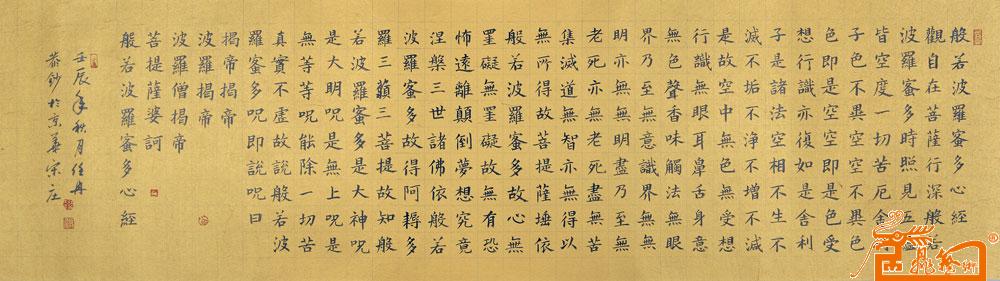 般若波羅蜜多心經
觀自在菩薩行深般若
波羅蜜多時照見五
皆空度一切苦厄舍
子色不異空空不異色
色即是空空即是色受
想行識亦復如是舍利
子是諸法空相不生不
滅不垢不淨不增不減
是故空中無色無受想
行識無眼耳鼻舌身意
無色聲香味觸法無眼
界乃至無意識界無無
明亦無無明盡乃至無
老死亦無老死盡無苦
集滅道無智亦無得以
無所得故菩提薩埵依
般若波羅蜜多故心無
罣礙無罣礙故無有恐
怖遠離顛倒夢想究竟
涅槃三世諸佛依般若
波羅蜜多故得阿耨多
羅三藐三菩提故知般
若波羅蜜多是大神呪
是大明呪是無上呪是
無等等呪能除一切苦
真實不虛故說般若波
羅蜜多呪即說呪曰
揭帝揭帝
波羅揭帝
波羅僧揭帝
菩提薩婆訶
般若波羅蜜多心經
壬辰年秋月任冉
恭鈔於京華宋庄